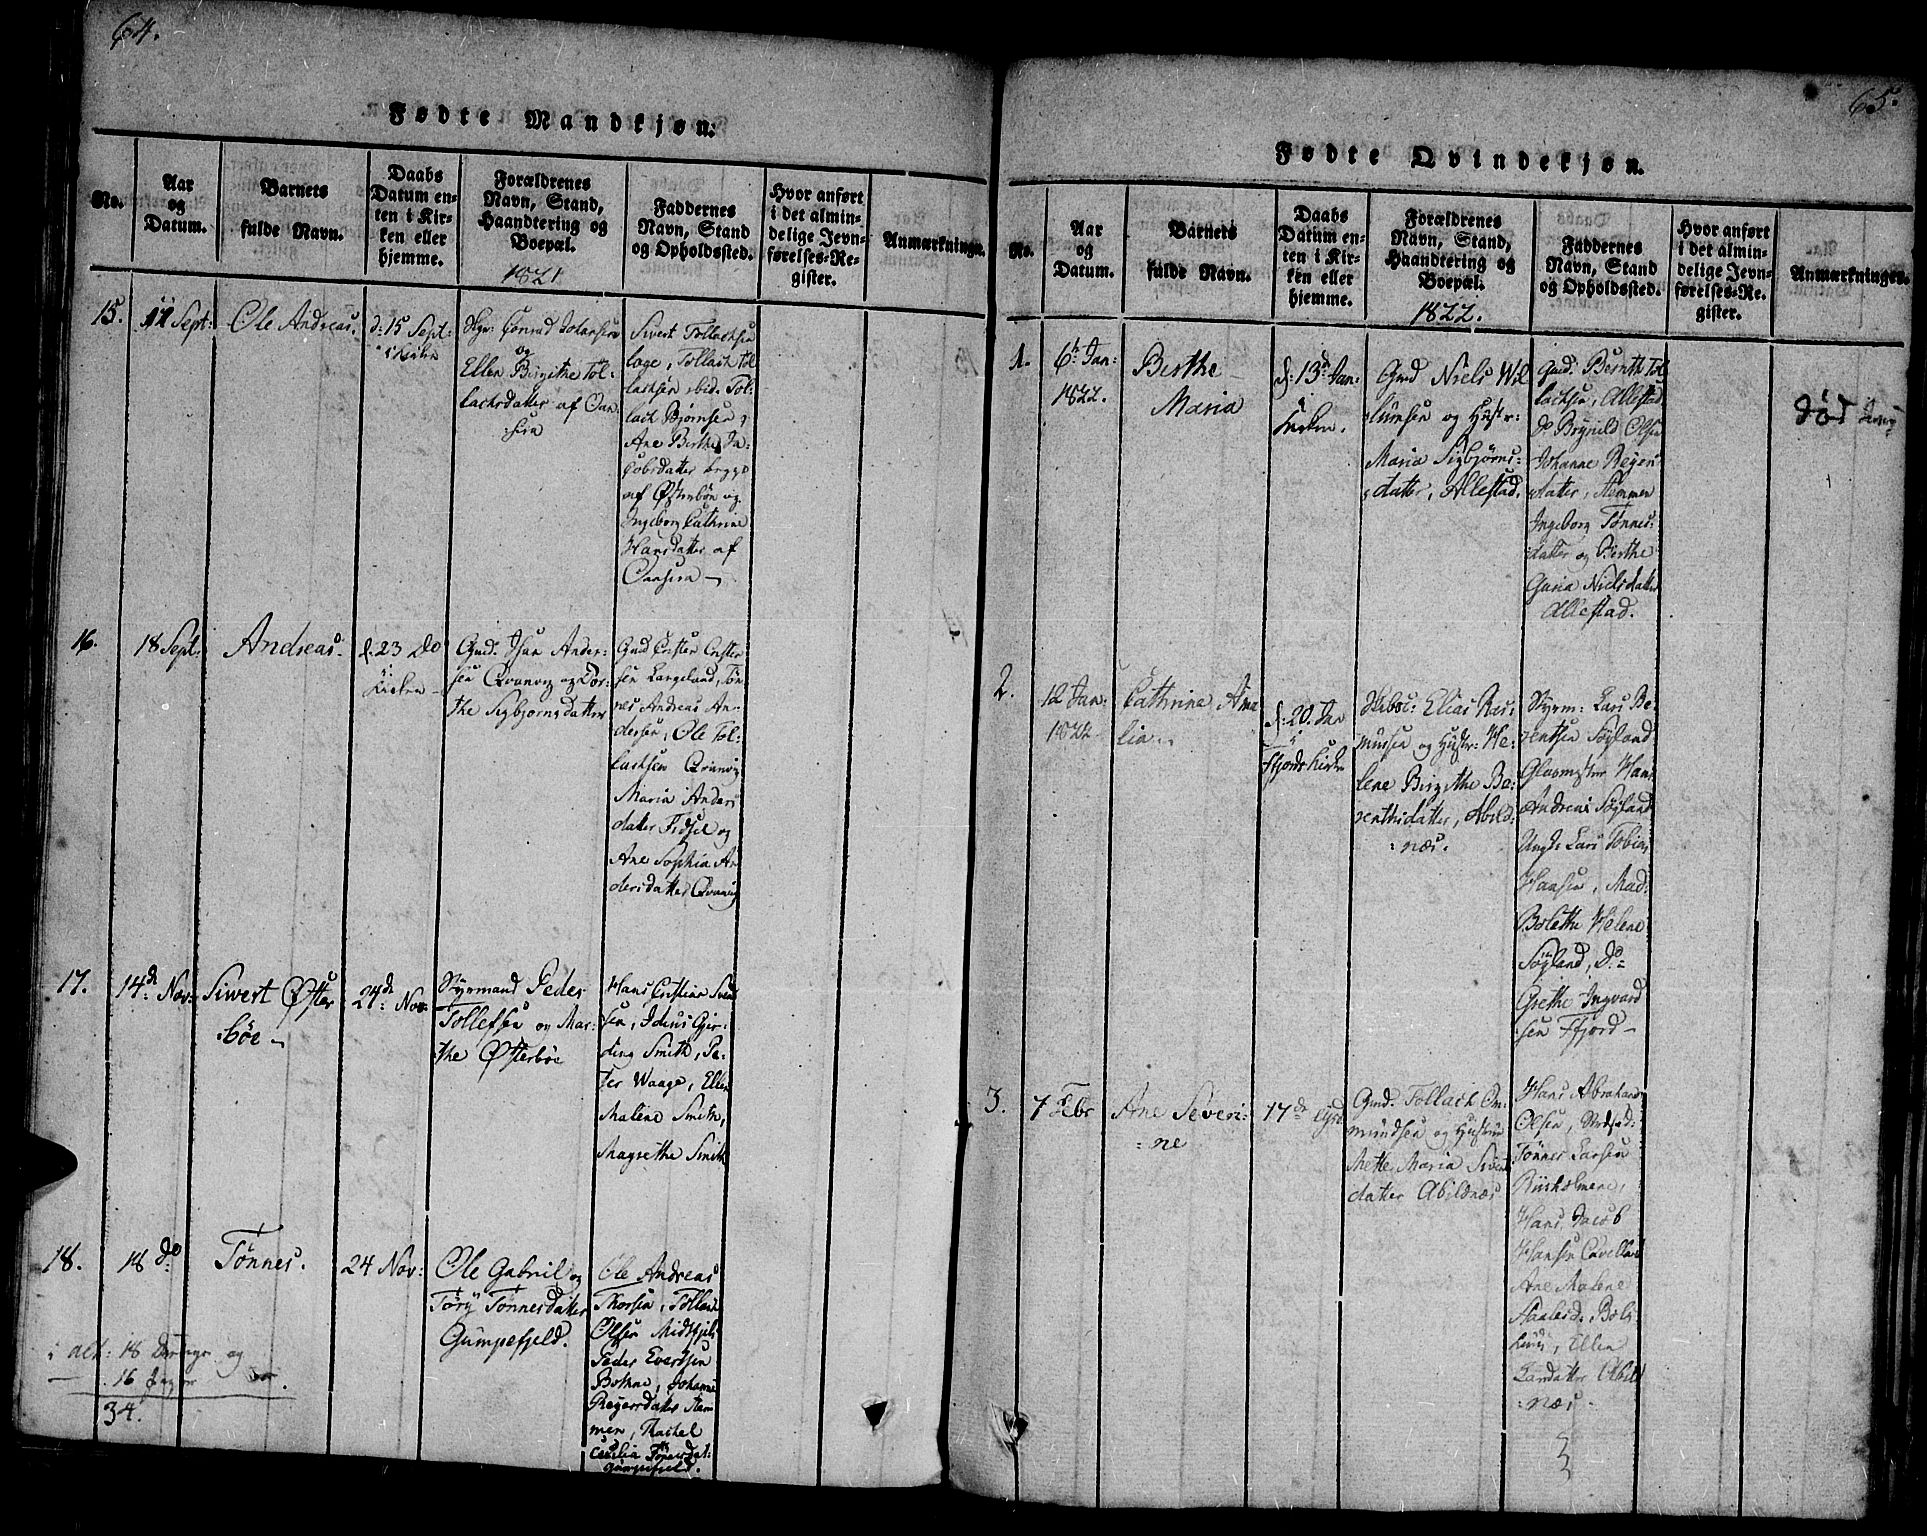 64.
Fødte Mandkjøn.
No.
Aar
og
Datum.
Barnets
fulde Navn.
Daabs
Datum en-
ten i Kir-
ken eller
hjemme.
Forældrenes
Navn, Stand,
Haandtering og
Boepæl.
1821
Faddernes
Navn, Stand
og Opholdssted.
Hvor anført
i det almin-
delige Jevn-
førelses-Re-
gister.
Anmærkninger.
15.
11 Sept:
Ole Andreas.
d: 15 Sept:
i Kirken
Conrad Johansen
og
Ellen Birgithe Tol-
lachsdatter af
Sivert Tollachsen
Loge, Tollach Tol
lachsen ibid. Tol-
lach Bjørnsen,
Ane Birthe Ja
cobsdatter begge
af Østerbøe og
Ingeborg Cathrine
Hansdatter af
16.
18 Sept.
Andreas.
d. 23 do
i
Kirken
Gmd. Isan Ander-
sen Qvanvig og Dor-
the Sigbjørnsdatter
Gmd Crister Crister
sen Langeland, Tøn-
nes Andreas An-
dersen, Ole Tol-
lachsen Qvanvig
Maria Anders
datter Fidsel og
Ane Sophia An
dersdatter Qvanvig
17.
14de Nov:
Siwert Øster
bøe
24de Nov:
Styrmand Peder
Tollefsen og Mar-
the Østerbøe
Hans Cristian Sven
sen, Gjer-
ding Smith, Pe-
ter Waage, Ellen
Malene Smith,
Magrethe Smith
18.
18 do
Tønnes.
24 Nov:
Ole Gabriel og
Tøry Tønnesdatter
Gumpefjeld.
Ole Andreas
Thorsen, Tollach
Olsen Midtfjeld
Peder Evertsen
Bothne, Johanne
Regersdatter Stem-
men, Rachel
Cecilia Tønnesdat:
Gumpefjeld.
i alt: 18 Drenge og
16 Piger
34.
65.
Fødte Qvindekjøn.
No.
Aar
og
Datum.
Barnets
fulde Navn.
Daabs
Datum en-
ten i Kir-
ken eller
hjemme.
Forældrenes
Navn, Stand,
Haandtering og
Boepæl.
1822.
Faddernes
Navn, Stand
og Opholdssted.
Hvor anført
i det almin-
delige Jevn-
førelses-Re-
gister.
Anmærkninger.
1.
6te Jan:
1822.
Birthe
Maria
d: 13de Jan:
i
Kirken.
Gmd Niels Wil
lumsen og Hustr:
Maria Sigbjørns-
datter, Allestad.
Gmd: Bernth Tol
lachsen, Allestad
do Brynild Olsen
Johanne Reger
datter, Stemmen
Ingeborg Tønnes-
datter og Birthe
Guria Nielsdatter
Allestad.
død
2.
12 Jan:
1822
Cathrina Ama
lia
d: 20 Jan
i
Ffjords Kirke
Elias Ras-
mussen og Hustr: He-
lene Birgithe Be-
renthsdatter, Abild-
næs.
Styrm: Lars Be-
rentsen Søyland
Glasmester Hans
Andreas Søyland
Ungk: Lars Tobias
Hansen, Mad:
Bolethe Helene
Søyland, Do
Grethe Ingvard
sen Ffjord
3.
7 Febr
Ane Severi-
ne
17de
Gmd. Tollach Om-
mundsen og Hustrue
Mette Maria Sivert
datter Abildnæs
Hans Abraham
Olsen,
Tønnes Larsen
Riisholmene,
Hans Jacob
Hansen
Ane Malene
Ellen
Abild
næs.